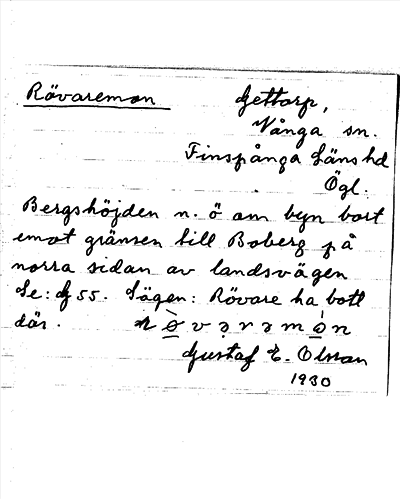 Rövaremon
Gettorp,
Vånga sn.
Finspånga Läns hd
Ögl.
Bergshöjden n. ö om byn bort
emot gränsen till Boberg på
norra sidan av landsvägen
Se: G 55. Sägen: Rövare ha bott
där.
Gustaf E. Olsson
1930